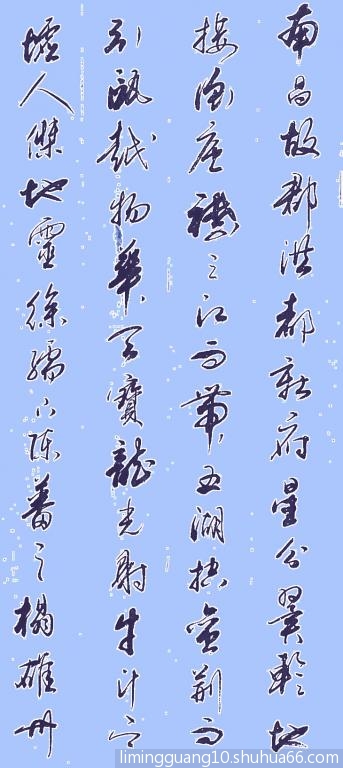 南昌故郡洪都新府星分翼軫地
接衡廬襟三江而帶五湖控蠻荊而
引甌越物華天寶龍光射牛斗之
墟人傑地靈徐孺下陳蕃之榻雄州
limingguang10.shuhua66.com